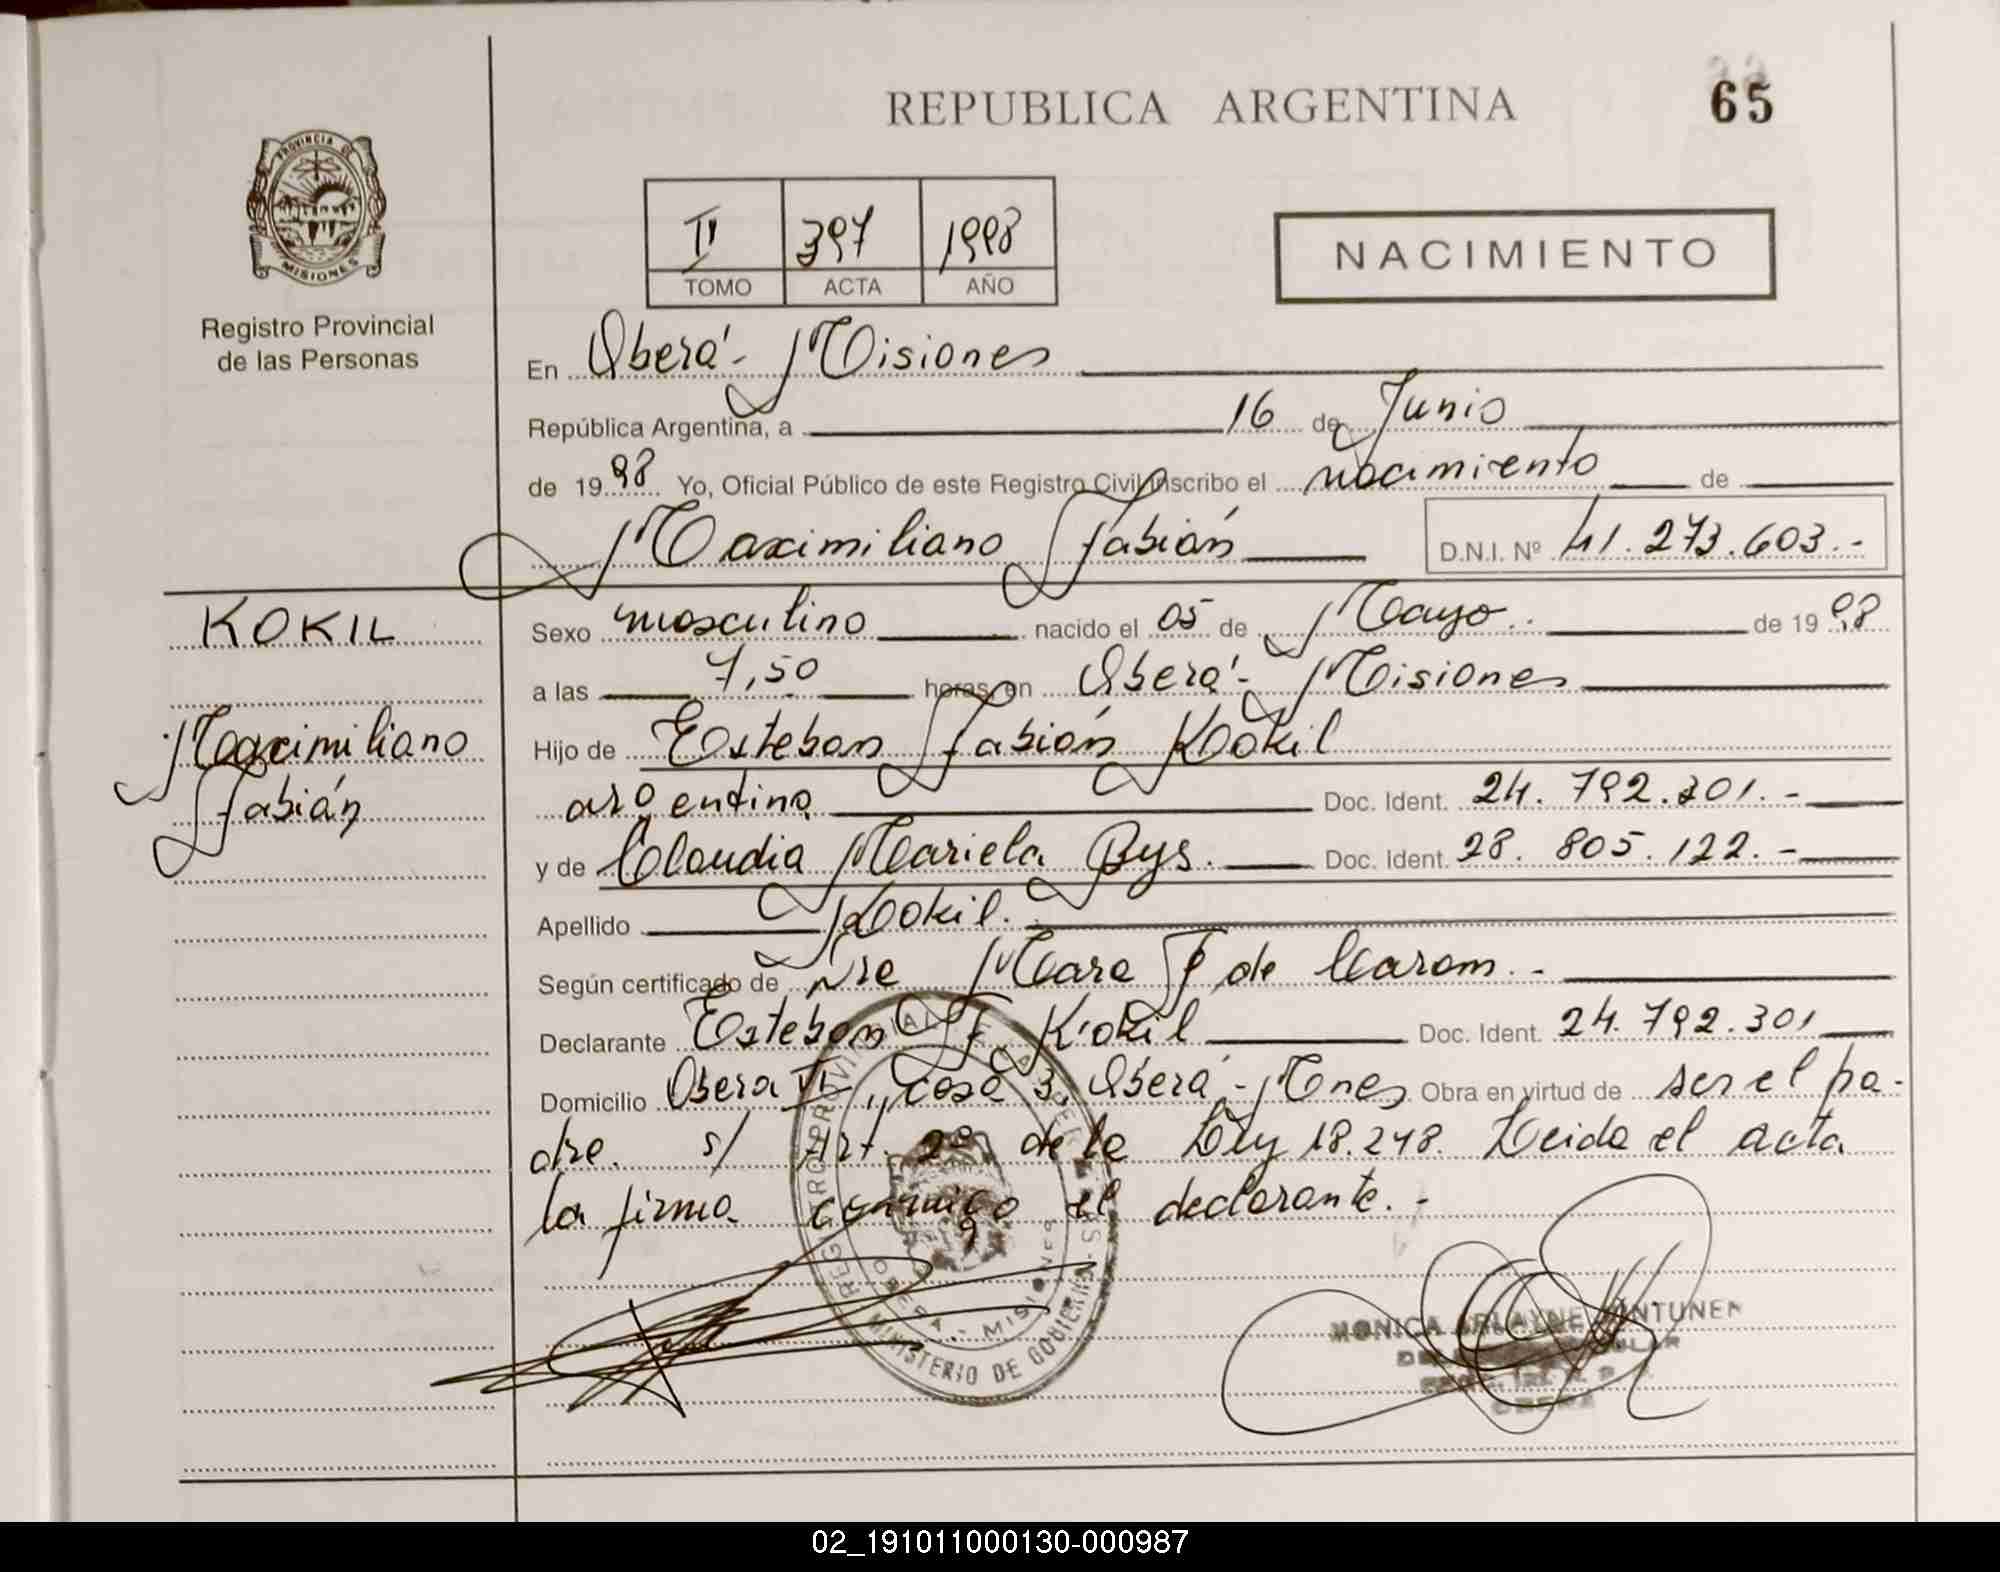 65
REPUBLICA ARGENTINA
PROVINCIA DE
MISIONES
Registro Provincial
de las Personas
II 397 1998
TOMO ACTA AÑO
NACIMIENTO
En Oberá - Misiones
República Argentina, a 16 de Junio
de 1998 Yo, Oficial Público de este Registro Civil inscribo el nacimiento de
Maximiliano Fabián D.N.I. Nº 41.273.603.-
KOKIL
Maximiliano
Fabián
Sexo masculino nacido el 05 de Mayo de 1998
a las 7,50 horas en Oberá - Misiones
Hijo de Esteban Fabián Kokil
argentino Doc. Ident. 24.792.301.-
y de Claudia Mariela Bys. Doc. Ident. 28.805.122.-
Apellido Kokil.
Según certificado de Mara F de .-
Declarante Esteban F. Kokil Doc. Ident. 24.792.301
Domicilio Oberá VI, casa 3, Oberá - Mnes Obra en virtud de ser el pa-
dre. s/ Art. 2º de la Ley 18.248. Leida el acta
la firma conmigo el declarante.-
REGISTRO PROVINCIAL DE LAS PERSONAS
OBERA - MISIONES
MINISTERIO DE GOBIERNO
MONICA ARLAYNE
OBERA
02_191011000130-000987